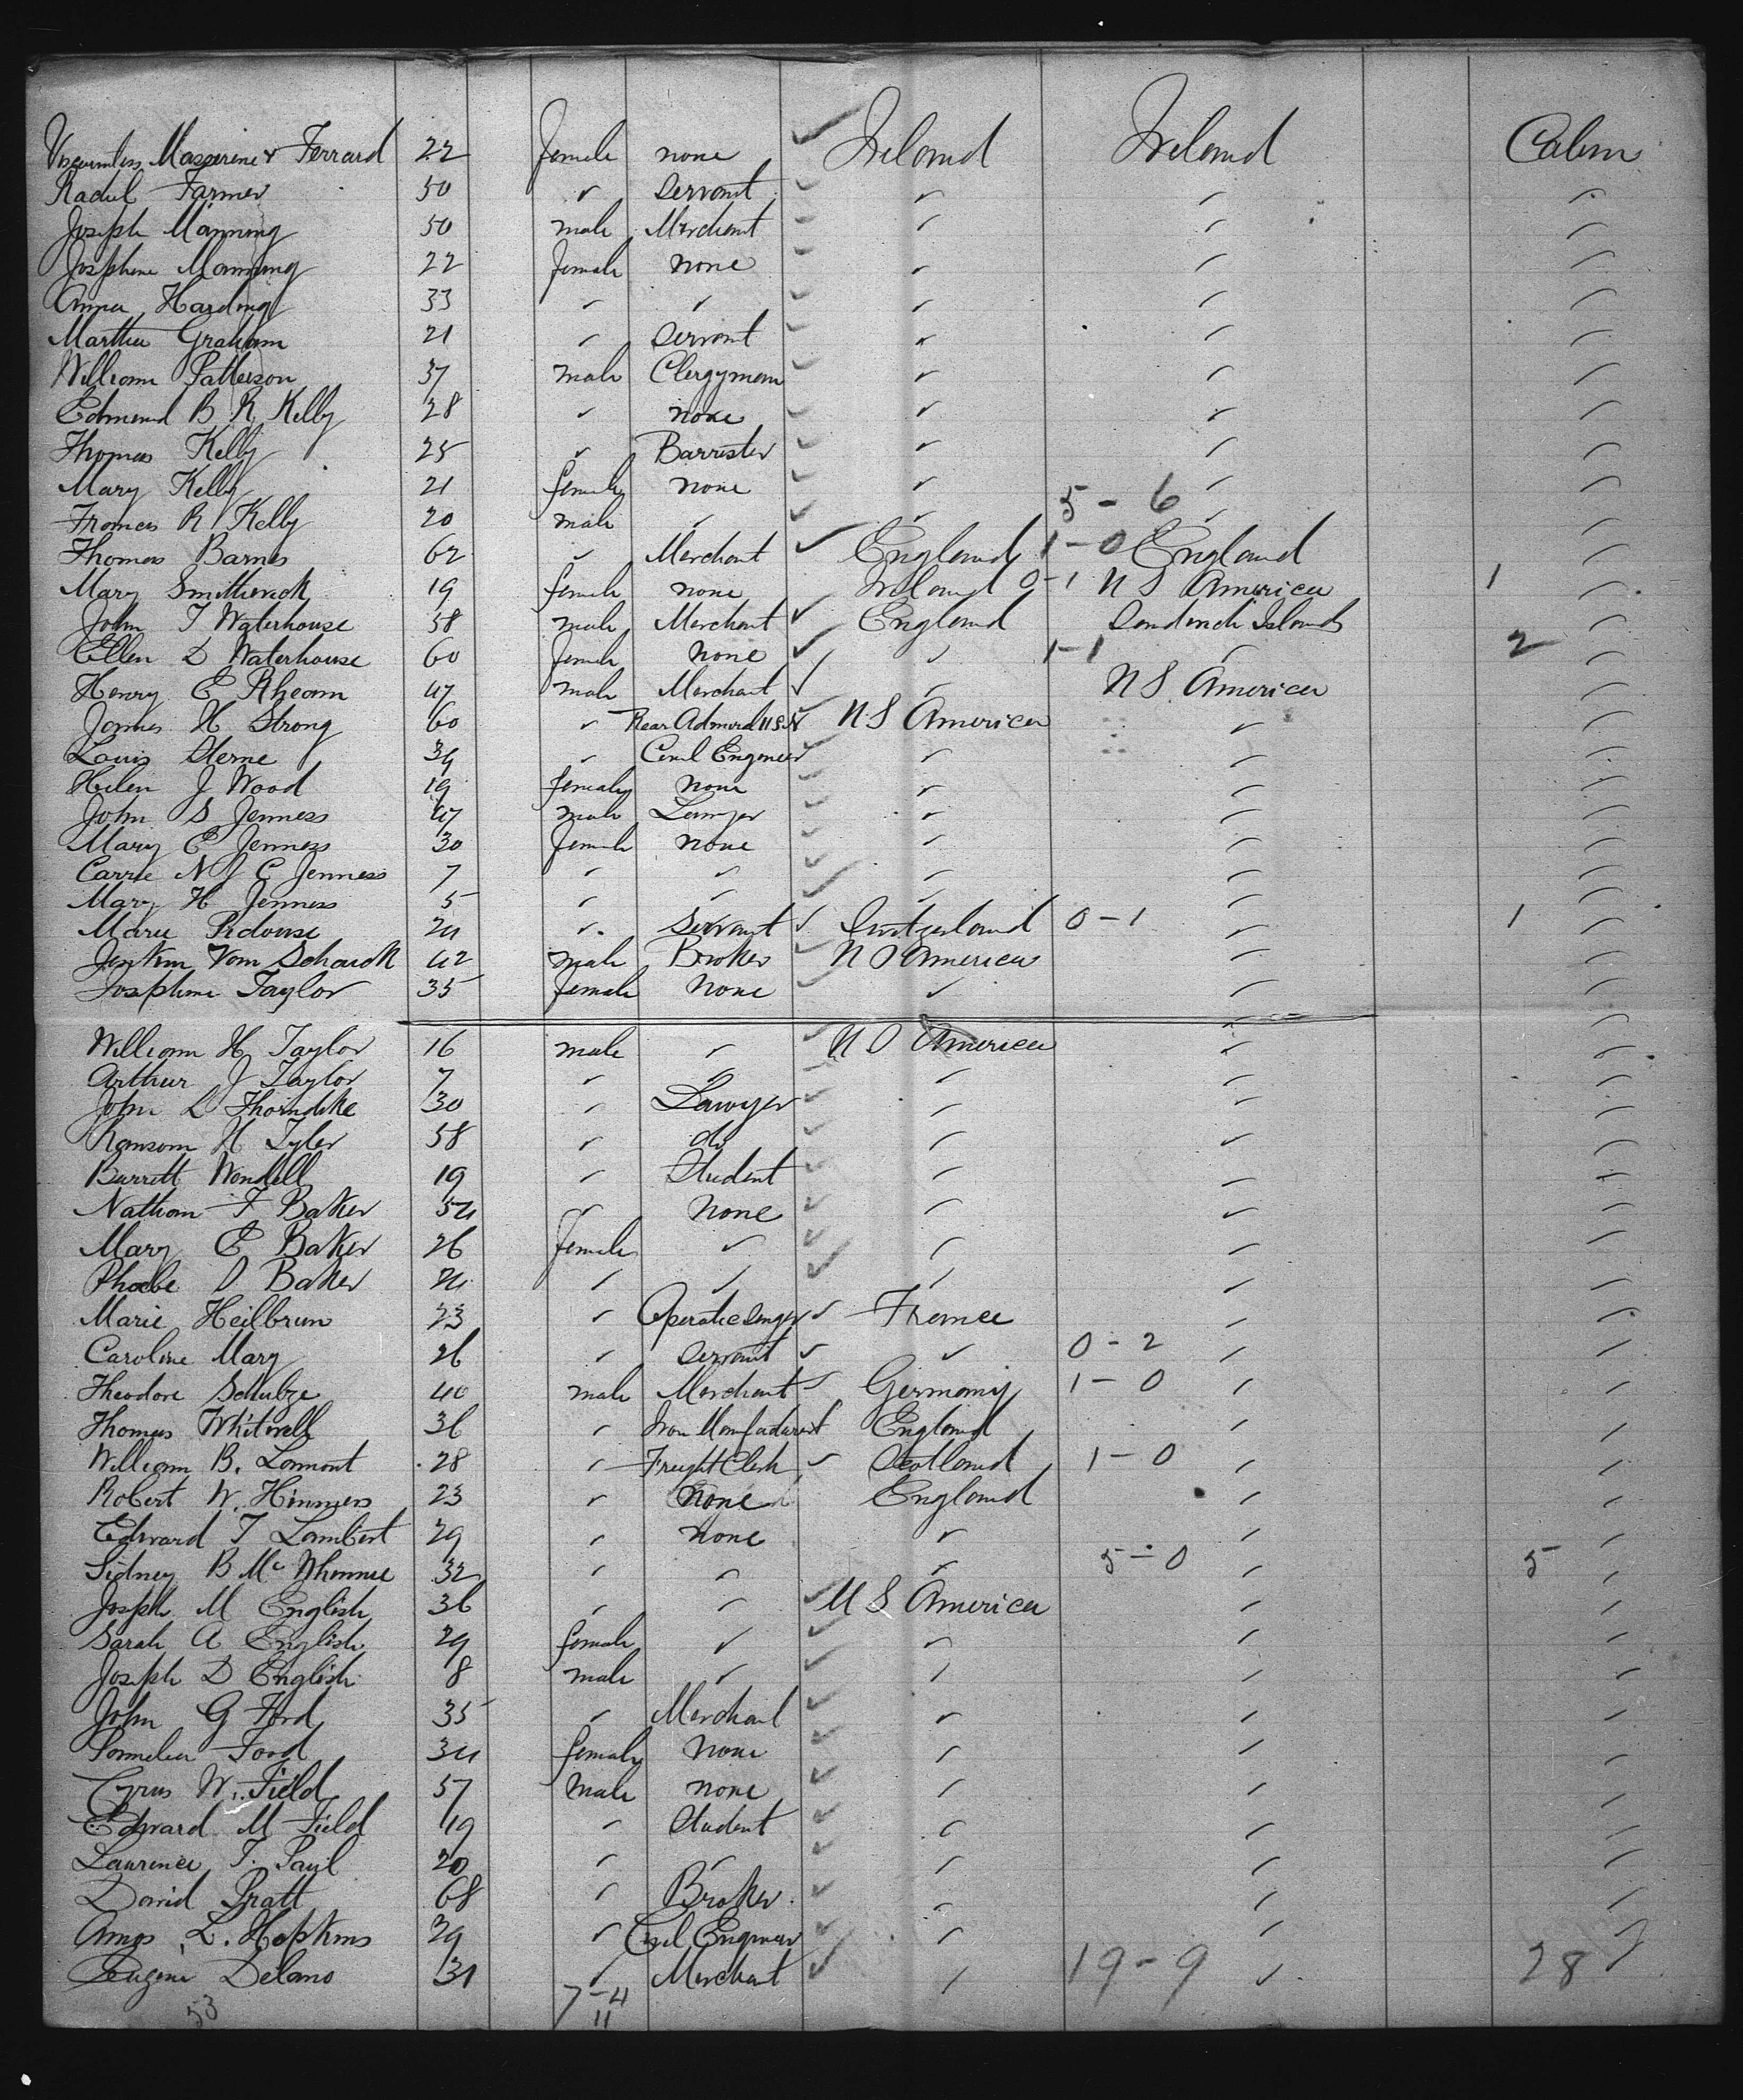 Viscountess Massereene & Ferrard 22 female none ✓ Ireland Ireland Cabin
Rachel Farmer 50 ✓ Servant ✓ ✓ ✓ ✓
Joseph Manning 50 male Merchant ✓ ✓ ✓ ✓
Josephine Manning 22 female none ✓ ✓ ✓ ✓
Anna Harding 33 ✓ ✓ ✓ ✓ ✓ ✓
Martha Graham 21 ✓ Servant ✓ ✓ ✓ ✓
William Patterson 37 male Clergyman ✓ ✓ ✓ ✓
Edmund B. R. Kelly 28 ✓ none ✓ ✓ ✓ ✓
Thomas Kelly 25 ✓ Barrister ✓ ✓ ✓ ✓
Mary Kelly 21 female none ✓ ✓ ✓ ✓
Frances R Kelly 20 male ✓ ✓ ✓ 5-6 ✓ ✓
Thomas Barnes 62 ✓ Merchant ✓ England 1-0 England ✓
Mary Smithwick 19 female none Ireland 0-1 U S America 1 ✓
John T Waterhouse 58 male Merchant ✓ England Sandwich Islands ✓
Ellen D Waterhouse 60 female none ✓ ✓ 1-1 ✓ 2 ✓
Henry C Rheam 47 male Merchant ✓ ✓ U S America ✓
James H Strong 60 ✓ Rear Admiral U S N ✓ U S America ✓ ✓
Louis Sterne 39 ✓ Civil Engineer ✓ ✓ ✓ ✓
Helen J Wood 19 female none ✓ ✓ ✓ ✓
John S Jenness 47 male Lawyer ✓ ✓ ✓ ✓
Mary E Jenness 30 female none ✓ ✓ ✓ ✓
Carrie N J C Jenness 7 ✓ ✓ ✓ ✓ ✓ ✓
Mary H Jenness 5 ✓ ✓ ✓ ✓ ✓ ✓
Marie 24 ✓ Servant ✓ Switzerland 0-1 ✓ 1 ✓
Jenkin Van Schaick 42 male Broker ✓ U S America ✓ ✓
Josephine Taylor 35 female none ✓ ✓ ✓
William H Taylor 16 male ✓ ✓ U S America ✓ ✓
Arthur J Taylor 7 ✓ ✓ ✓ ✓ ✓ ✓
John L Thorndike 30 ✓ Lawyer ✓ ✓ ✓ ✓
Ransom H Tyler 58 ✓ do ✓ ✓ ✓ ✓
Barrett Wendell 19 ✓ Student ✓ ✓ ✓ ✓
Nathan F Baker 54 ✓ None ✓ ✓ ✓ ✓
Mary E Baker 26 female ✓ ✓ ✓ ✓ ✓
Phoebe D Baker 24 ✓ ✓ ✓ ✓ ✓ ✓
Marie Heilbrun 23 ✓ Operatic Singer ✓ France ✓ ✓
Caroline Mary 26 ✓ Servant ✓ ✓ 0-2 ✓ ✓
Theodore Schulze 40 male Merchant ✓ Germany 1-0 ✓ ✓
Thomas Whitwell 36 ✓ Iron Manufacturer England ✓ ✓
William B. Lamont 28 ✓ Freight Clerk ✓ Scotland 1-0 ✓ ✓
Robert W. Himmers 23 ✓ none England ✓ ✓
Edward T Lambert 29 ✓ none ✓ ✓ ✓
Sidney B McWhinnie 32 ✓ ✓ ✓ 5-0 ✓ 5 ✓
Joseph M English 36 ✓ ✓ ✓ U S America ✓ ✓
Sarah A English 29 female ✓ ✓ ✓ ✓ ✓
Joseph D English 8 male ✓ ✓ ✓ ✓ ✓
John G Ford 35 ✓ Merchant ✓ ✓ ✓ ✓
Pamelia Ford 34 female none ✓ ✓ ✓ ✓
Cyrus W. Field 57 male none ✓ ✓ ✓ ✓
Edward M Field 19 ✓ Student ✓ ✓ ✓ ✓
Laurence T. Paul 20 ✓ ✓ ✓ ✓ ✓ ✓
David Pratt 68 ✓ Broker ✓ ✓ ✓ ✓
Amos L. Hopkins 29 ✓ Civil Engineer ✓ ✓ ✓ ✓
Eugene Delano 31 ✓ Merchant ✓ ✓ 19-9 ✓ 28 ✓
53 7-4
11